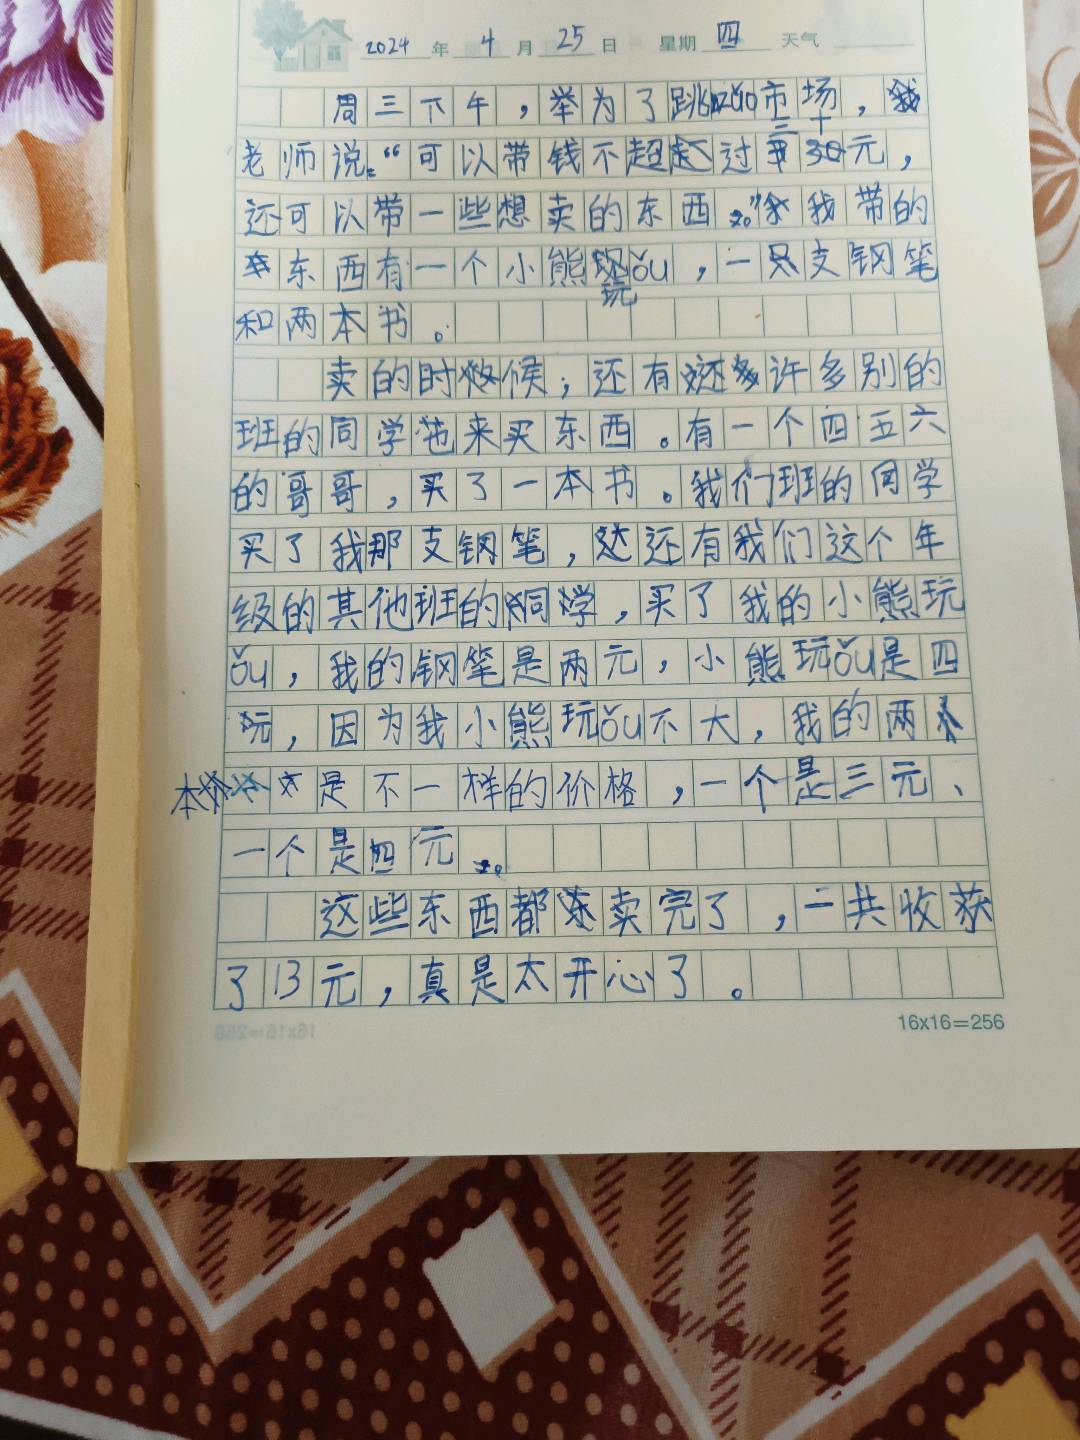 2024年4月25日 星期四 天气
周三下午，举为了跳zǎo市场，
老师说。“可以带钱不超过三十元，
还可以带一些想卖的东西。”我带的
东西有一个小熊玩ǒu，一支钢笔
和两本书。
卖的时候，还有许多别的
班的同学也来买东西。有一个四五六
的哥哥，买了一本书。我们班的同学
买了我那支钢笔，还有我们这个年
级的其他班的同学，买了我的小熊玩
ǒu，我的钢笔是两元，小熊玩ǒu是四
玩，因为我小熊玩ǒu不大，我的两
本是不一样的价格，一个是三元、
一个是四元。
这些东西都卖完了，一共收获
了13元，真是太开心了。
16x16=256